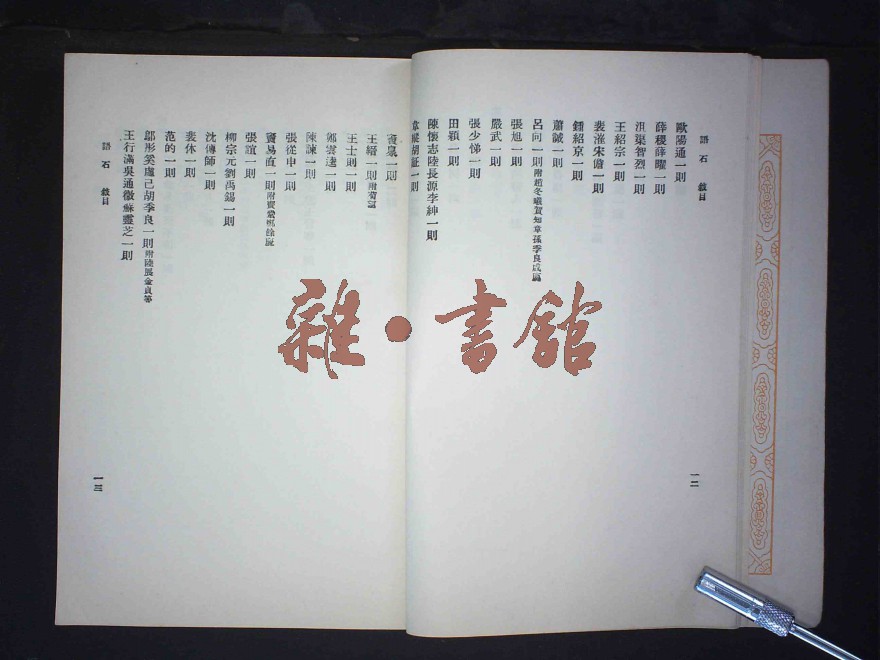 語石 敍目
歐陽通一則
薛稷薛曜一則
沮渠智烈一則
王紹宗一則
裴漼宋儋一則
鍾紹京一則
蕭誠一則
呂向一則附趙冬曦賀知章孫季良成㢘
張旭一則
嚴武一則
張少悌一則
田穎一則
陳懷志陸長源李紳一則
胡証一則
一二
竇臮一則
王縉一則附
王士則一則
鄭雲逵一則
陳諫一則
張從申一則
竇易直一則附
張誼一則
柳宗元劉禹錫一則
沈傳師一則
裴休一則
范的一則
鄔彤奚虛己胡季良一則附陸展金貞等
王行滿吳通微蘇靈芝一則
語石 敍目
一三
雜·書館